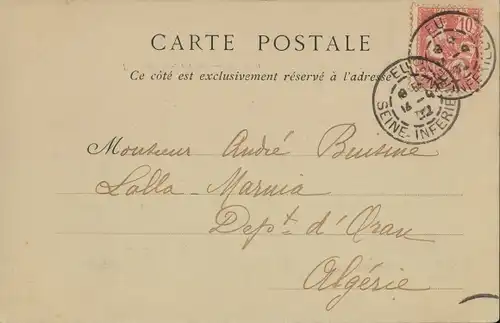 10
CARTE POSTALE
Ce côté est exclusivement réservé à l'adresse
EU
SEINE-INFERIEURE
EU
SEINE-INFERIE
Monsieur André Buisine
Lalla-Marnia
Dep.t d'Oran
Algérie